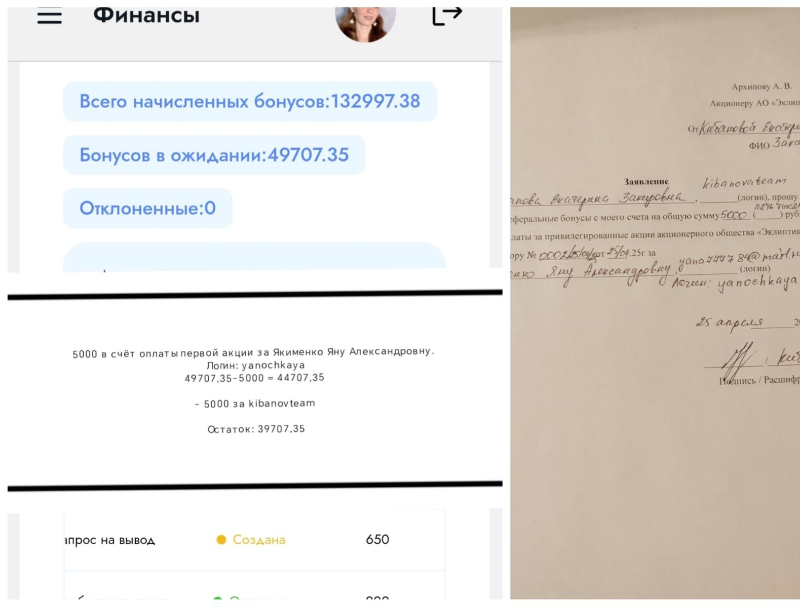 Финансы
Всего начисленных бонусов:132997.38
Бонусов в ожидании:49707.35
Отклоненные:0
5000 в счёт оплаты первой акции за Якименко Яну Александровну.
Логин: yanochkaya
49707,35-5000 = 44707,35
- 5000 за kibanovteam
Остаток: 39707,35
апрос на вывод Создана 650
Архипову А. В.
Акционеру АО «Эклип
От Кибановой Екатер
ФИО
Заявление kibanovateam
нова Екатерина Закировна, (логин), прошу
еферальные бонусы с моего счета на общую сумму 5000 ( ) руб
латы за привилегированные акции акционерного общества «Эклиптик
ору № от 25/04.25г за
нко Яну Александровну, yana777784@mail.
(логин)
Логин: yanochkaya
25 апреля 2
Подпись / Расшифр